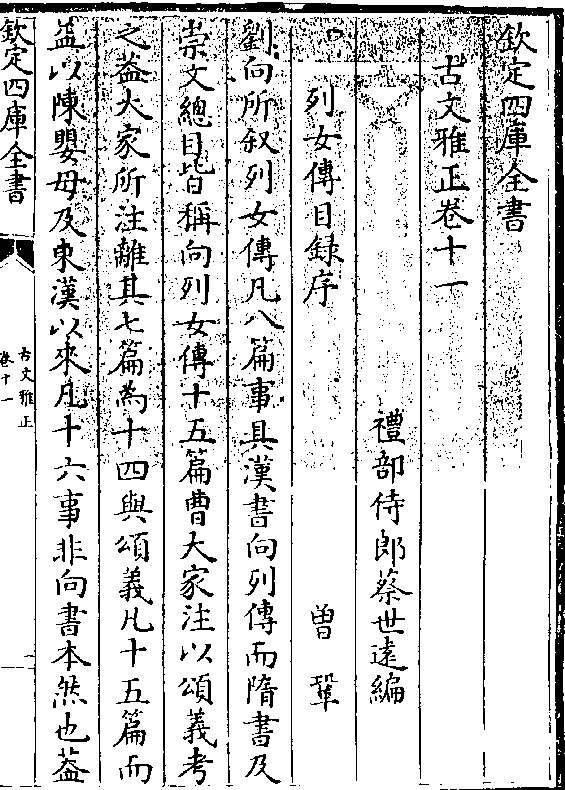 欽定四庫全書
古文雅正卷十一
禮部侍郎蔡世遠編
列女傳目録序 曽鞏
劉向所叙列女傳凡八篇事具漢書向列傳而隋書及
崇文總目皆稱向列女傳十五篇曹大家注以頌義考
之葢大家所注離其七篇為十四與頌義凡十五篇而
益以陳嬰母及東漢以來凡十六事非向書本然也葢
欽定四庫全書
古文雅正
卷十一
一